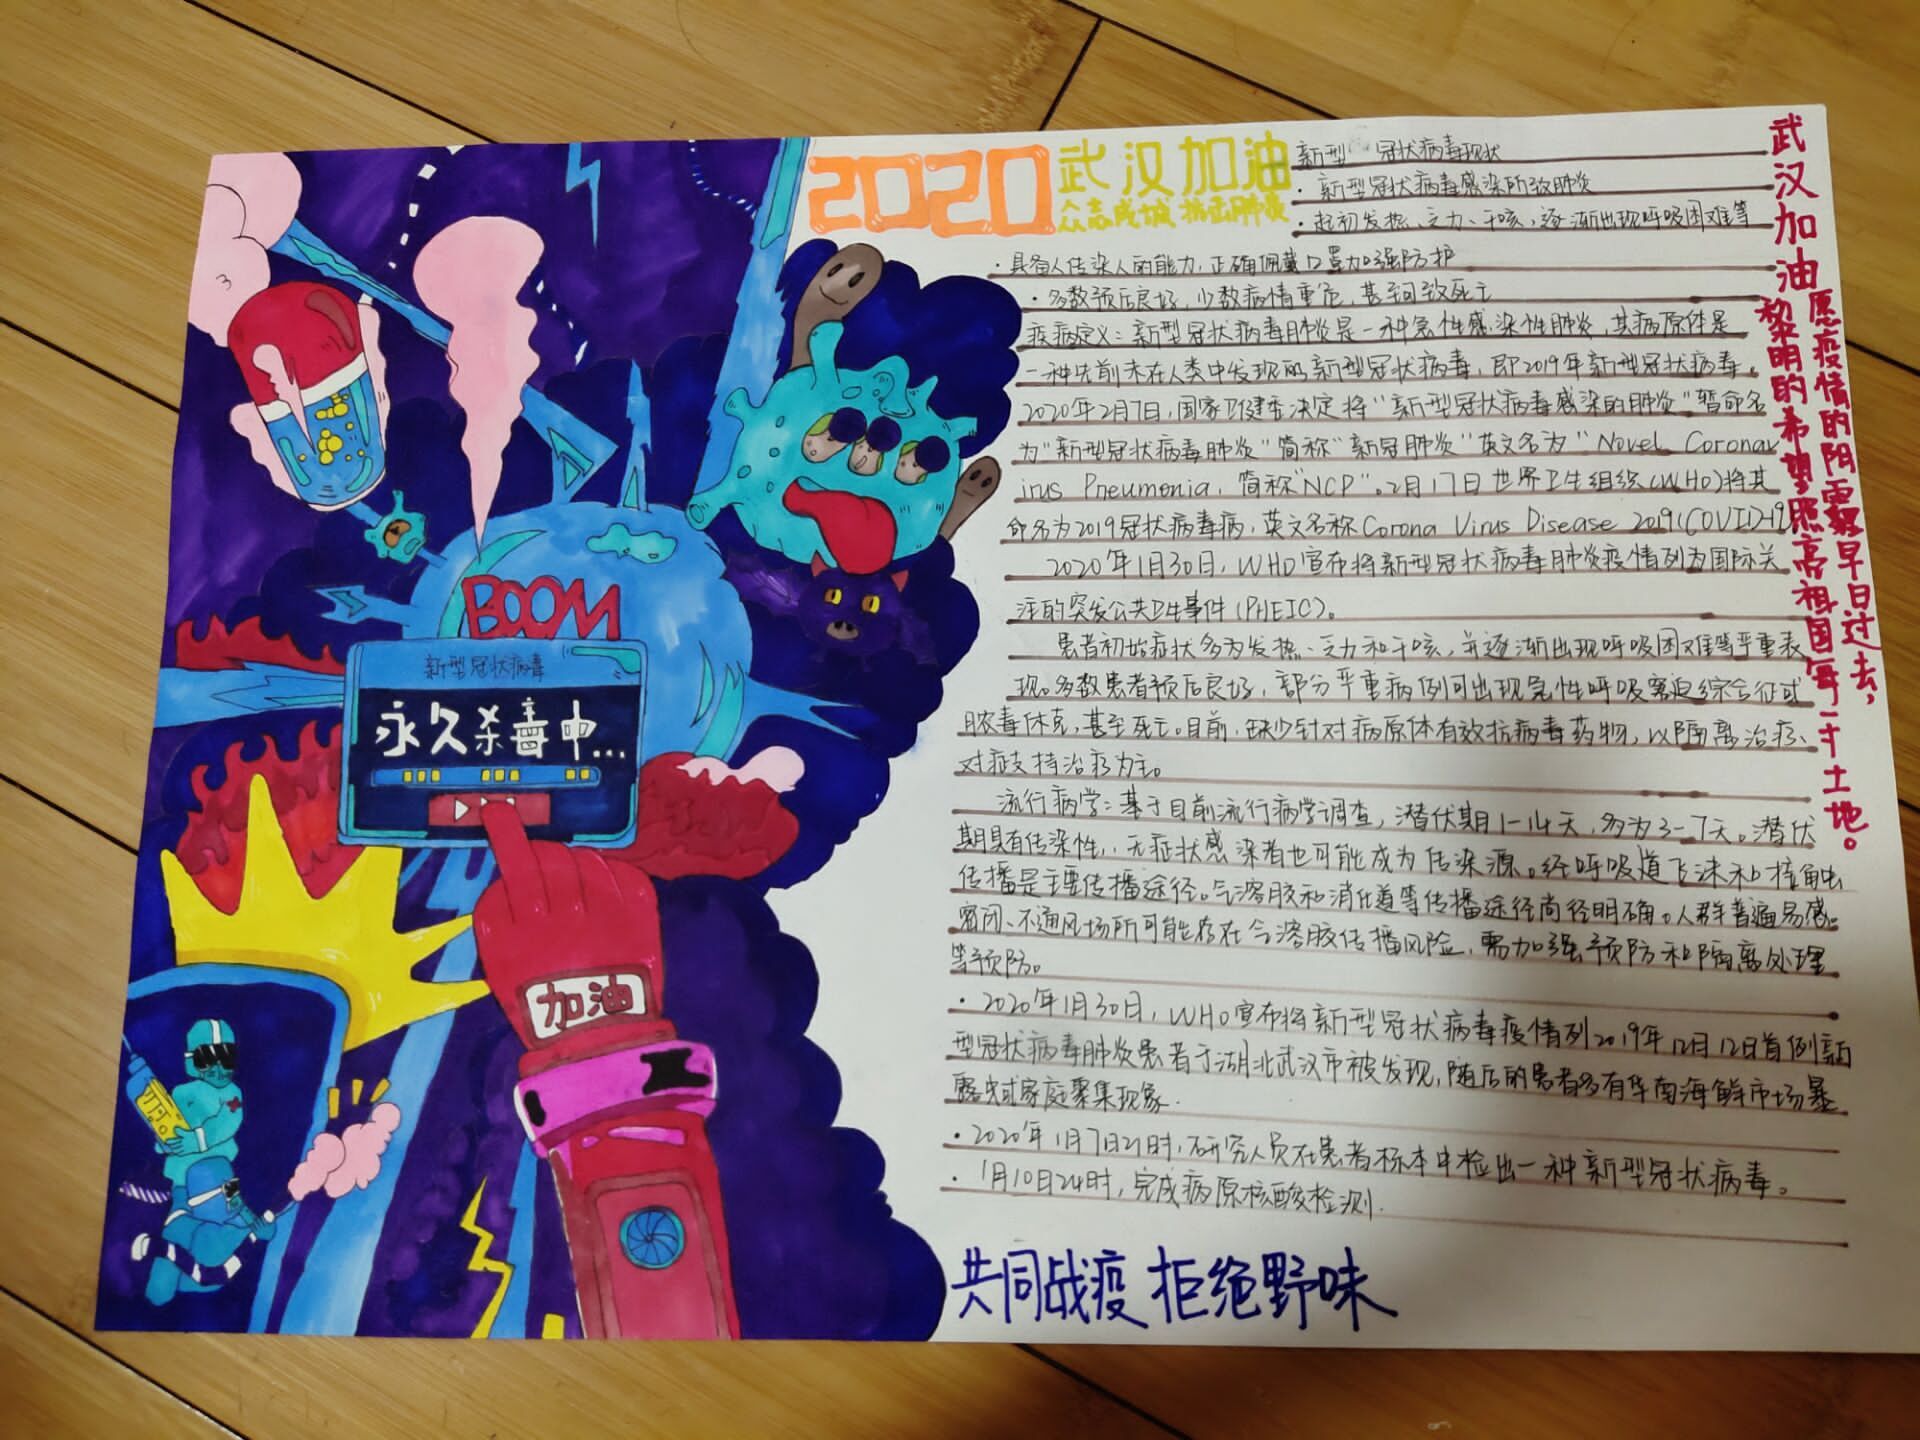 2020
武汉加油
众志成城 抗击肺炎
新型 冠状病毒现状
· 新型冠状病毒感染所致肺炎
· 起初发热、乏力、干咳,逐渐出现呼吸困难等
· 具备人传染人的能力,正确佩戴口罩加强防护
· 多数预后良好,少数病情重危,甚至可致死亡
疾病定义:新型冠状病毒肺炎是一种急性感染性肺炎,其病原体是
一种先前未在人类中发现的新型冠状病毒,即2019年新型冠状病毒。
2020年2月7日,国家卫健委决定将“新型冠状病毒感染的肺炎”暂命名
为“新型冠状病毒肺炎”简称“新冠肺炎”英文名为“Novel Coronav
irus Pneumonia,简称“NCP”。2月17日世界卫生组织(WHO)将其
命名为2019冠状病毒病,英文名称Corona Virus Disease 2019(COVID-19
2020年1月30日,WHO宣布将新型冠状病毒肺炎疫情列为国际关
注的突发公共卫生事件(PHEIC)。
患者初始症状多为发热、乏力和干咳,并逐渐出现呼吸困难等严重表
现。多数患者预后良好,部分严重病例可出现急性呼吸窘迫综合征或
脓毒休克,甚至死亡。目前,缺少针对病原体有效抗病毒药物,以隔离治疗、
对症支持治疗为主。
流行病学:基于目前流行病学调查,潜伏期1-14天,多为3-7天。潜伏
期具有传染性,无症状感染者也可能成为传染源。经呼吸道飞沫和接触
传播是主要传播途径。气溶胶和消化道等传播途径尚径明确。人群普遍易感。
密闭、不通风场所可能存在气溶胶传播风险,需加强预防和隔离处理
等预防。
· 2020年1月30日,WHO宣布将新型冠状病毒疫情列2019年12月12日首例新
型冠状病毒肺炎患者于湖北武汉市被发现,随后的患者多有华南海鲜市场暴
露史或家庭聚集现象.
· 2020年1月7日21时,研究人员在患者标本中检出一种新型冠状病毒。
· 1月10日24时,完成病原核酸检测.
共同战疫 拒绝野味
武汉加油
愿疫情的阴霾早日过去,
黎明的希望照亮祖国每一寸土地。
BOOM
新型冠状病毒
永久杀毒中...
加油